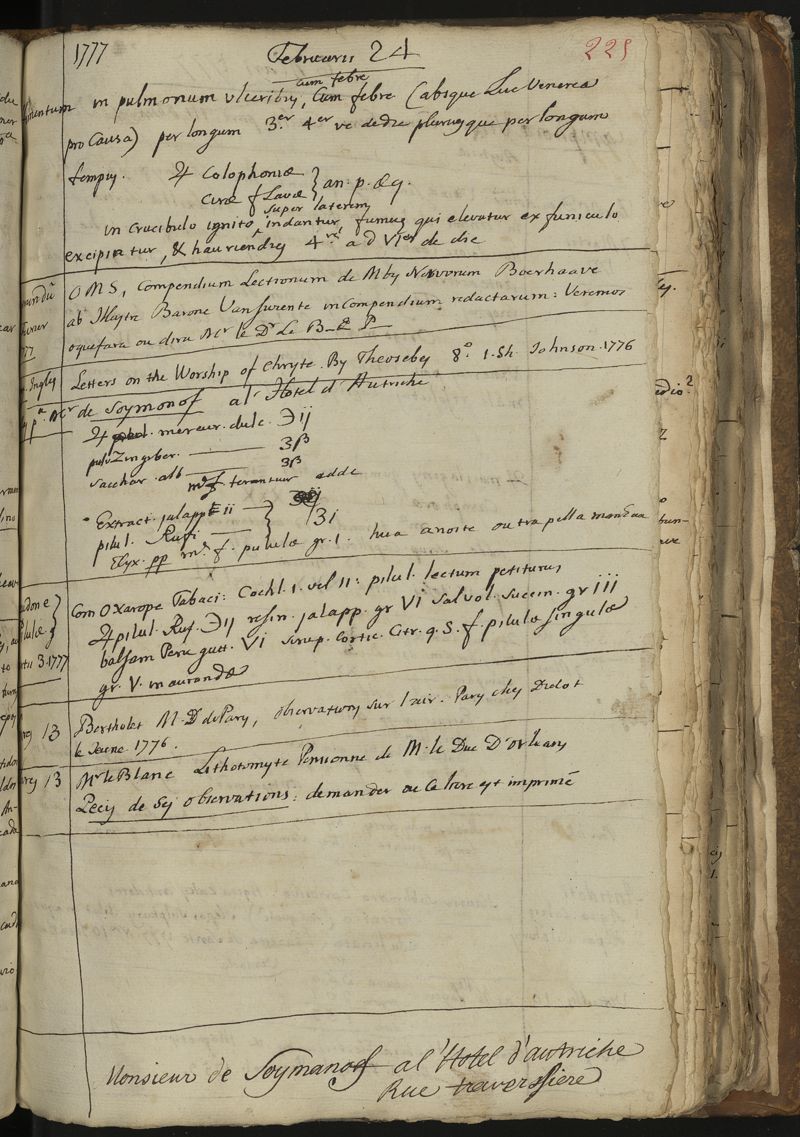 1777 Februarii 24 225
cum febre
in pulmonum ulceribus, cum febre (absque Lue Venerea
pro Causa) per longum 3.er 4er ve de die plurusque per longum
tempus. ♃ Colophoniæ
Ceræ flavæ } an. p. æq.
super laterem
in crucibulo ignito ^ indantur, fumus qui elevatur ex funiculo
excipiatur, & hauriendus 4.er ad VIer de die
O MS, Compendium Lectionum de Mbis Nervorum Boerhaave
ab Illustre Barone Vansuiente in compendium redactarum: Veremos
oquefara ou dira Mr le Dr Le B_ E P_
Letters on the Worship of Christe. By Theosebes 8.o 1.Sh. Johnson. 1776
pa Mr de Soymonof a l'Hotel d'Autriche
♃ mercur. dulc. ℈ij
pulv Zingiber. ʒβ
sacchar. alb ʒβ
m. f. terantur adde
Extract. jalapp ii
pilul. Rufi. } ʒi
Elyx. pp m. f. pilulæ gr. 1. hua anoite outra pella manháa
Com Oxarope Tabaci: Cochl. 1. vel 11: pilul. lectum petiturus
pilulæ
3. 1777
♃ pilul. Ruf. ℈ij resin. jalapp. gr VI Sal vol. succin. gr iii
balsam Peru gutt. VI sirup. cortic. Citr. q. S. f. pilulæ singulæ
gr. V. inaurandæ
13 Bertholet M. D de Pary, observations sur l'air. Pary chez Didot
le Jeune. 1776.
13 Mr le Blanc Lithotomyte Pensionne de M. le Duc D'Orleans
Precis de ses observations: demander ou le livre est imprimé
Monsieur de Soymanof a l'Hotel d'autriche
Rue traversiere